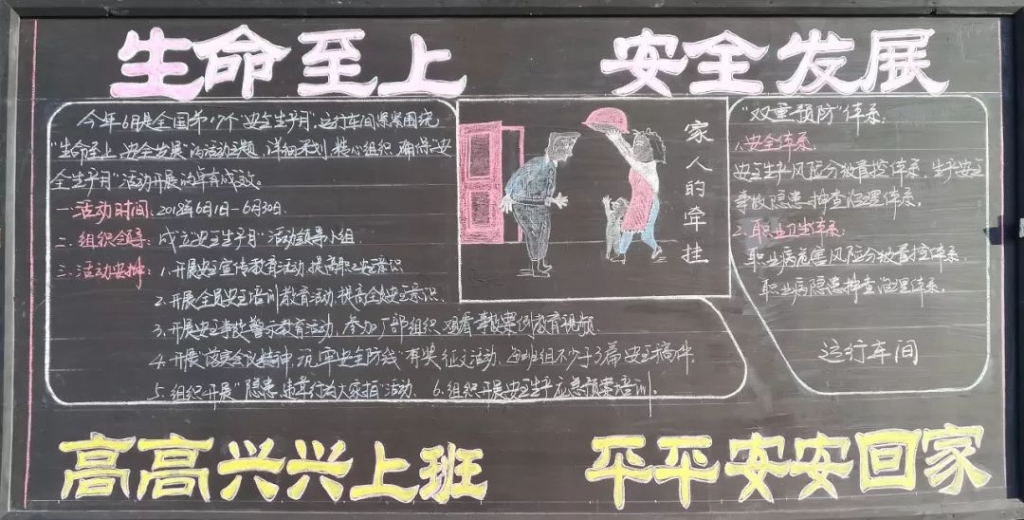 生命至上 安全发展
今年6月是全国第17个"安全生产月",运行车间紧紧围绕
"生命至上、安全发展"的活动主题,详细策划,精心组织,确保"安
全生产月"活动开展的卓有成效。
一.活动时间:2018年6月1日-6月30日.
二.组织领导:成立"安全生产月"活动领导小组.
三.活动安排:1.开展安全宣传教育活动,提高职工安全意识
2.开展全员安全培训教育活动,提高全员安全意识.
3.开展安全事故警示教育活动,参加厂部组织 观看事故案例教育视频
4.开展"落实会议精神,筑牢安全防线"有奖征文活动,每班组不少于3篇安全稿件
5.组织开展"隐患、违章行为大家拍"活动. 6.组织开展安全生产应急预案培训.
家人的牵挂
"双重预防"体系.
1.安全体系.
安全生产风险分级管控体系、生产安全
事故隐患排查治理体系.
2.职业卫生体系.
职业病危害风险分级管控体系.
职业病隐患排查治理体系.
运行车间
高高兴兴上班 平平安安回家